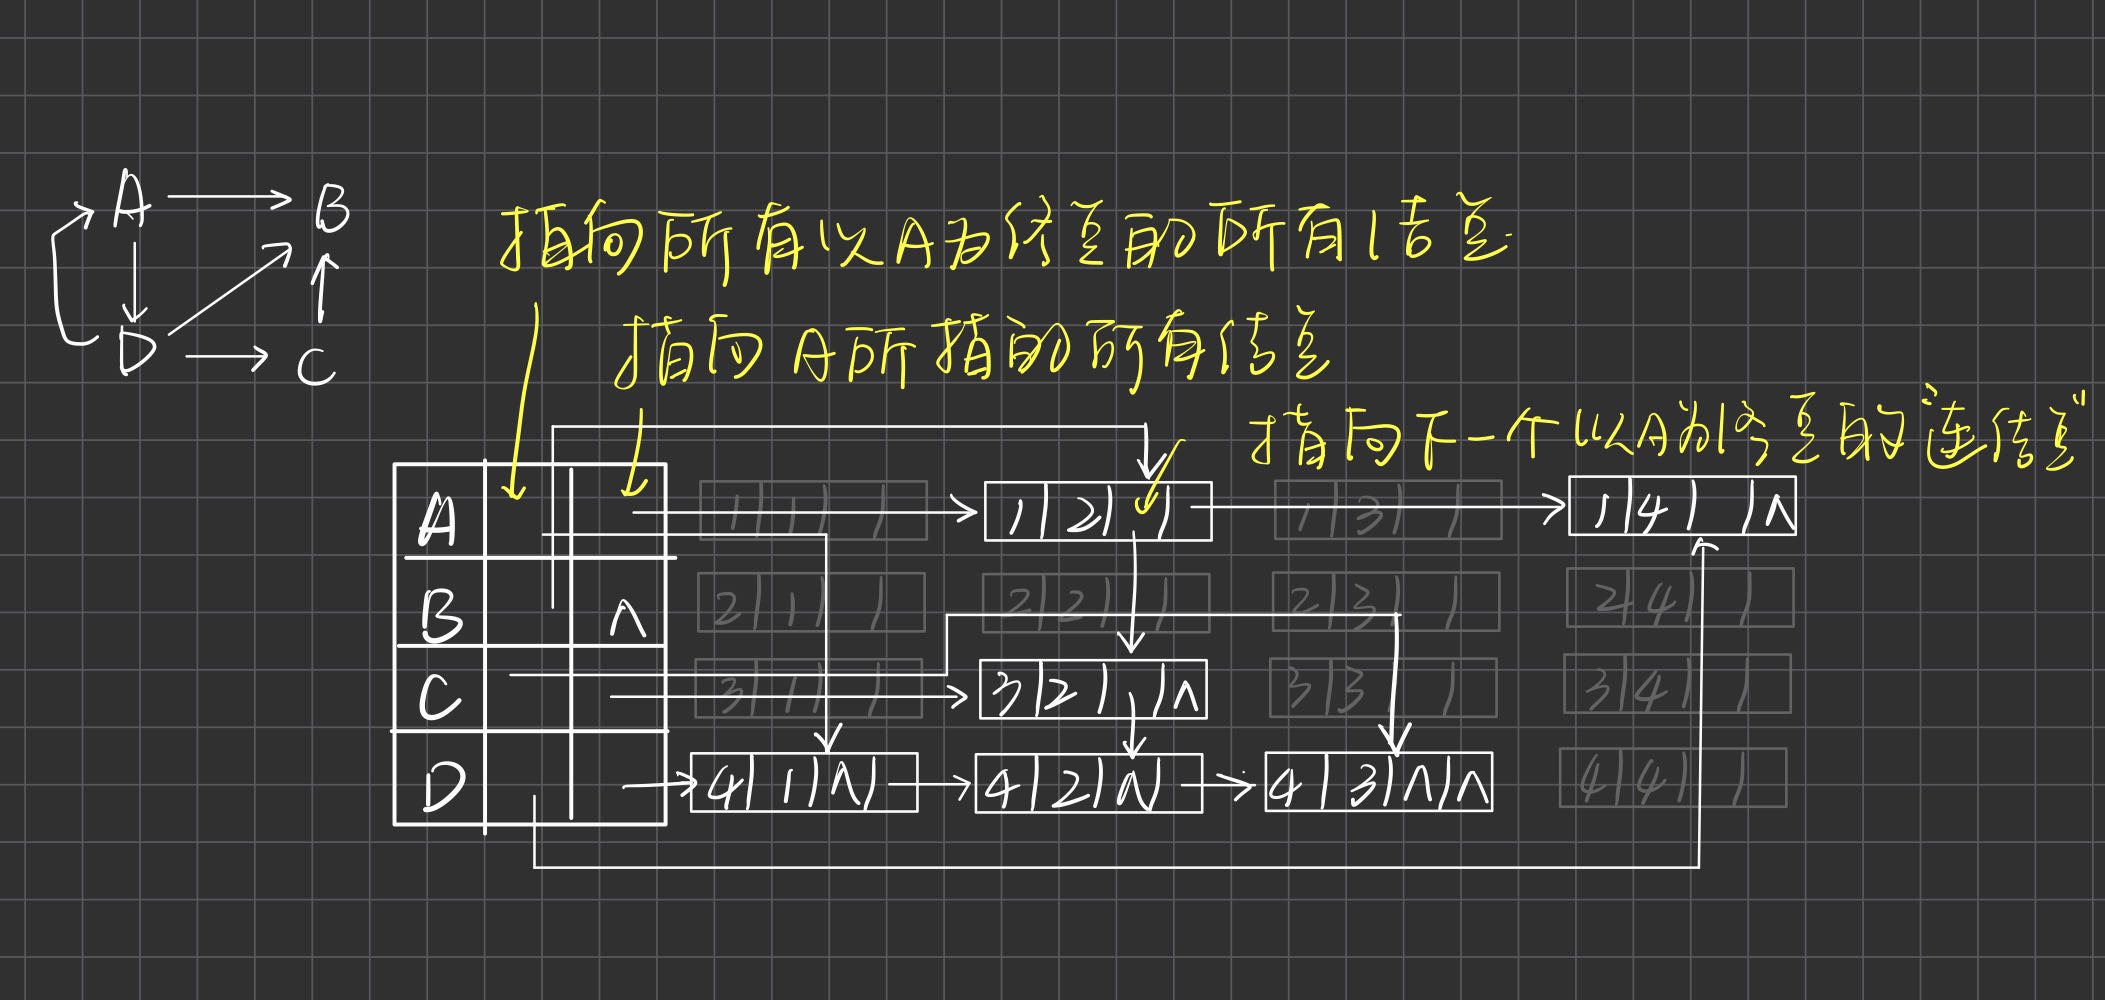 A B
D C
指向所有以A为终点的所有信息
指向A所指的所有信息
指向下一个以A为终点的"边信息"
A 1 1 1 2 1 3 1 4 ∧
B ∧ 2 1 2 2 2 3 2 4
C 3 1 3 2 ∧ 3 3 3 4
D 4 1 ∧ 4 2 ∧ 4 3 ∧ ∧ 4 4